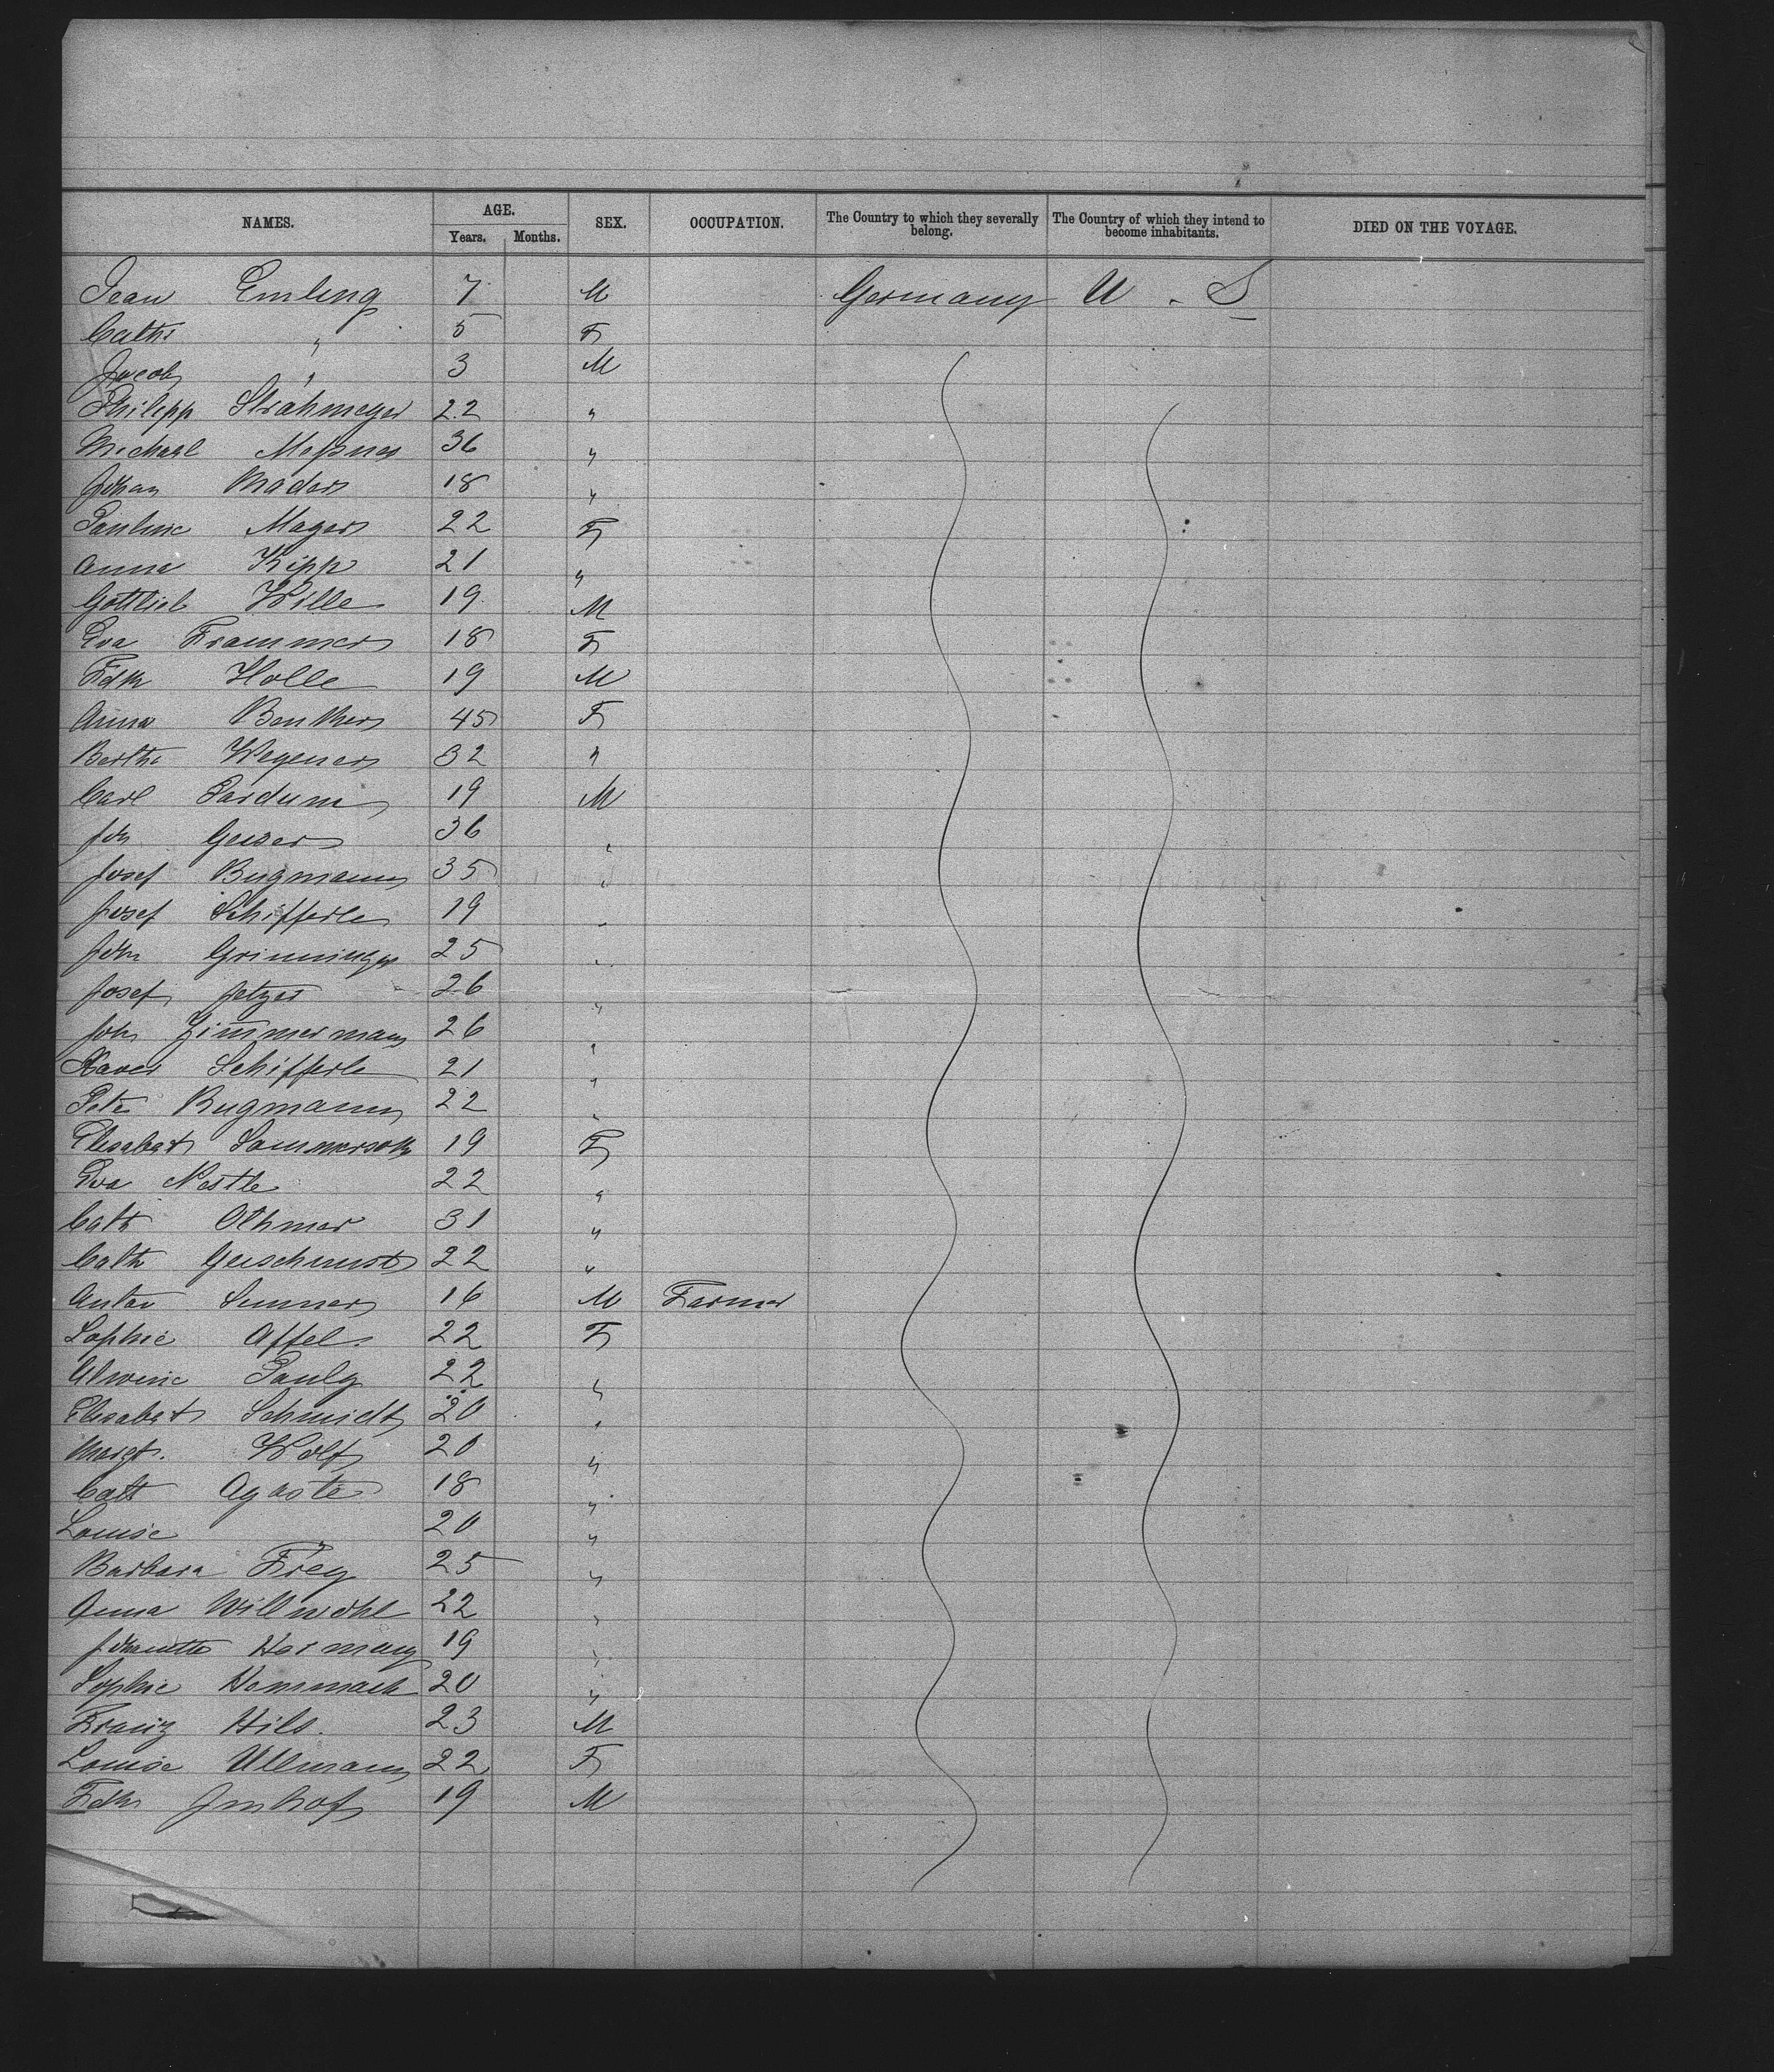 NAMES. AGE. SEX. OCCUPATION. The Country to which they severally belong. The Country of which they intend to become inhabitants. DIED ON THE VOYAGE.
Years. Months.
Jean Emling 7 M Germany U. S
Cathr " 5 F
Jacob " 3 M
Philipp Strohmeyer 22 "
Michael Meßner 36 "
Johan Mader 18 "
Pauline Mayer 22 F
Anna Kipp 21 "
Gottlieb Wille 19 M
Eva Frammer 18 F
Fdk Holle 19 M
Anna Benther 45 F
Bertha Wegener 32 "
Carl Pardum 19 M
Joh Geiser 36 "
Josef Bugmann 35 "
Josef Schifferle 19 "
Joh Grinninger 25 "
Josef Jetzer 26 "
Joh Zimmermann 26 "
Xaver Schifferle 21 "
Peter Bugmann 22 "
Elisabet Sommer 19 F
Eva Nestle 22 "
Cath Othmer 31 "
Cath 22 "
Anton Senner 16 M Farmer
Sophie Affel 22 F
Alwine Pauly 22 "
Elisabet Schmidt 20 "
Margt. Wolf 20 "
Cath Agaste 18 "
Louise " 20 "
Barbara Frey 25 "
Anna Willwohl 22 "
Johanette Hermann 19 "
Sophie 20 "
Franz Hils. 23 M
Louise Ullmann 22 F
Fdk Imhof 19 M